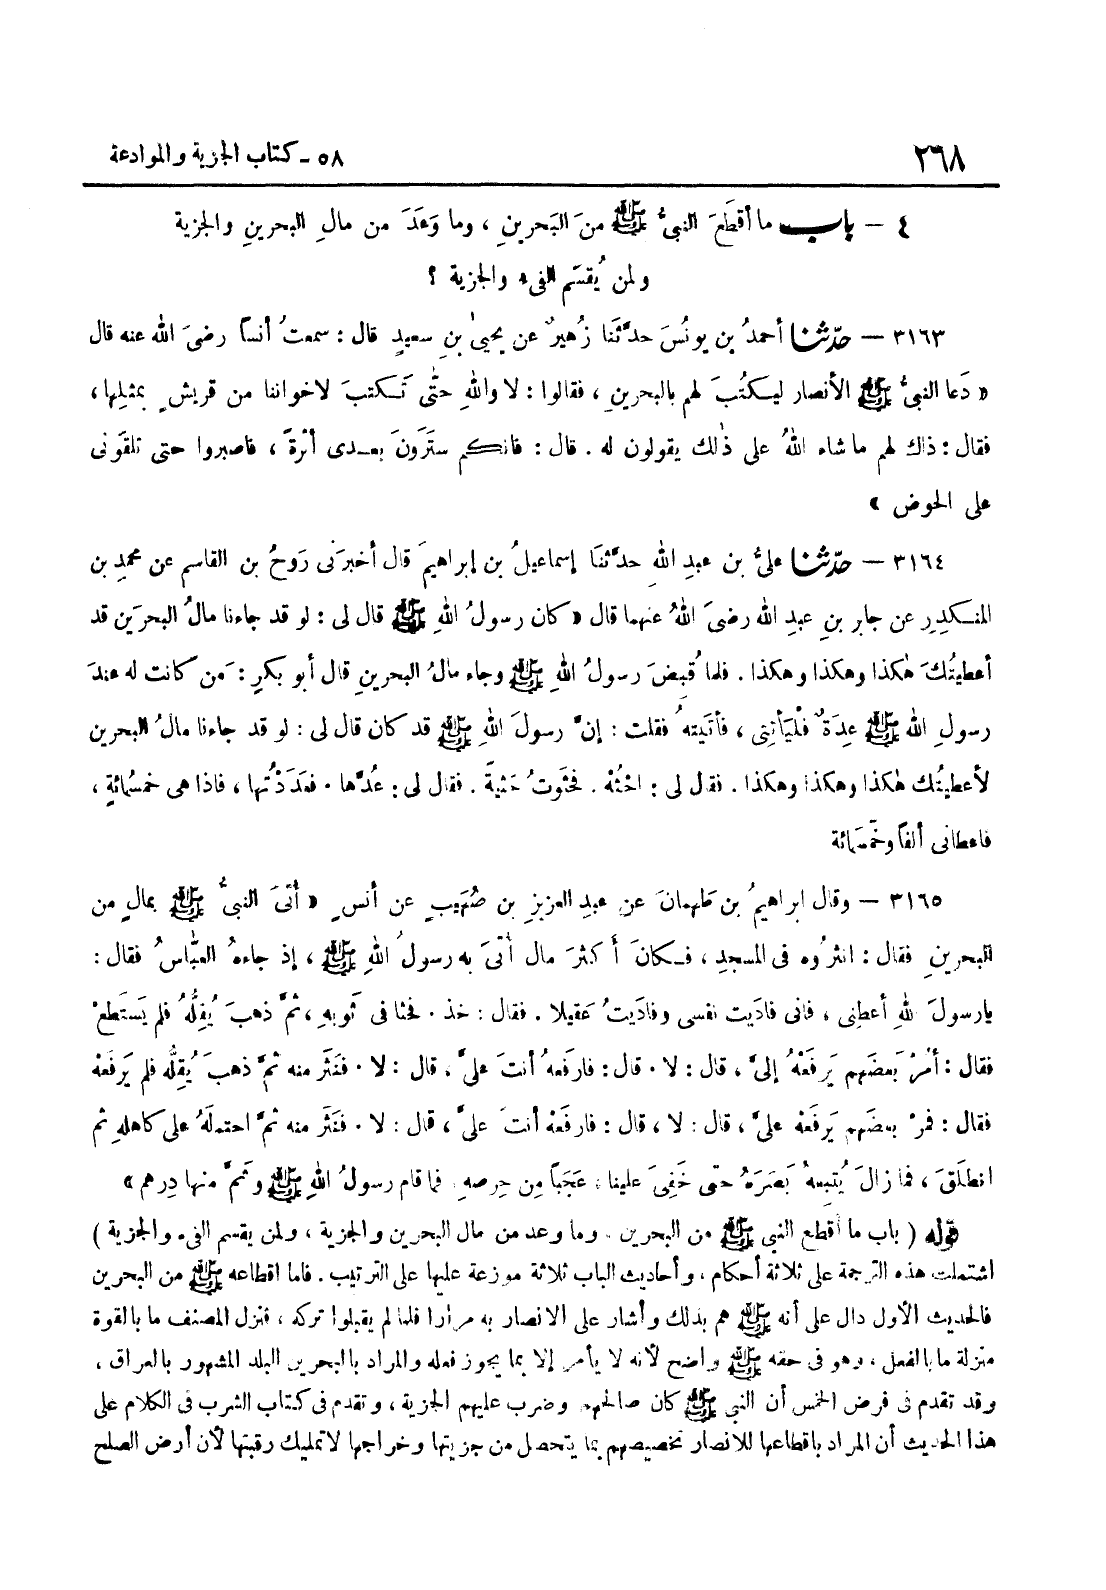 ٢٦٨ ٥٨ - كتاب الجزية والموادعة
٤ - باب ما أقطَعَ النبىُّ ﷺ منَ البَحرينِ ، وما وَعَدَ من مالِ البحرينِ والجزية
ولمن يُقسَم الفىء والجزية ؟
٣١٦٣ - حدّثنا أحمدُ بن يونُسَ حدَّثنَا زُهيرٌ عن يحيىٰ بنِ سعيدٍ قال : سمعتُ أنساً رضىَ الله عنه قال
« دَعا النبىُّ ﷺ الأنصار ليَكتُبَ لهم بالبحرينِ ، فقالوا : لا واللهِ حتّى تَكتبَ لاخواننا من قريشٍ بمثلِها ،
فقال : ذاك لهم ما شاء اللهُ على ذٰلك يقولون له . قال : فانكم ستَرَونَ بعدى أثرةً ، فاصبروا حتى تلقَونى
على الحوض »
٣١٦٤ - حدّثنا علىُّ بن عبدِ اللهِ حدَّثنَا إسماعيلُ بن إبراهيمَ قال أخبرَنى رَوحُ بن القاسم عن محمدِ بن
المنكدِرِ عن جابر بنِ عبدِ الله رضىَ اللهُ عنهما قال « كان رسولُ اللهِ ﷺ قال لى : لو قد جاءنا مالُ البحرَين قد
أعطيتُكَ هٰكذا وهكذا وهكذا . فلما قُبضَ رسولُ اللهِ ﷺ وجاء مالُ البحرينِ قال أبو بكرٍ : مَن كانت له عندَ
رسولِ الله ﷺ عِدَةٌ فلْيَأتِنى ، فأتَيتهُ فقلت : إنَّ رسولَ اللهِ ﷺ قد كان قال لى : لو قد جاءنا مالُ البحرين
لأعطيتُك هٰكذا وهكذا وهكذا . فقال لى : احْثُهْ . فحثَوتُ حَثيةً . فقال لى : عُدَّها . فعدَدْتُها ، فاذا هى خمسُمائةٍ ،
فاعطانى ألفاً وخمسَمائة
٣١٦٥ - وقال ابراهيمُ بن طهمانَ عن عبدِ العزيز بن صُهَيبٍ عن أنسٍ « أُتىَ النبىُّ ﷺ بمالٍ من
البحرينِ فقال : انثرُوه فى المسجدِ ، فكانَ أَكثرَ مال أُتىَ به رسولُ اللهِ ﷺ ، إذ جاءهُ العبّاسُ فقال :
يارسولَ اللهِ أعطِنى ، فانى فادَيت نفسى وفادَيتُ عَقيلا . فقال : خذ . فحثا فى ثوبهِ ، ثمَّ ذهبَ يُقِلُّهُ فلم يَستَطعْ
فقال : أْمُرْ بَعضَهم يَرفَعْهُ إلىَّ ، قال : لا . قال : فارفعهُ أنتَ علىَّ ، قال : لا . فنَثَر منه ثمَّ ذهبَ يُقِلُّه فلم يَرفَعْهُ
فقال : فمرْ بعضَهم يَرفَعْهُ علىَّ ، قال : لا ، قال : فارفَعْه أنتَ علىَّ ، قال : لا . فنَثَر منه ثمَّ احتملَهُ على كاهلهِ ثم
انطلَقَ ، فما زالَ يُتبِعهُ بَصَرَهُ حتّى خَفِىَ علينا ، عَجَباً مِن حِرصهِ . فما قام رسولُ اللهِ ﷺ وثَمَّ منها دِرهم »
قوله ( باب ما أقطع النبى ﷺ من البحرين . وما وعد من مال البحرين والجزية ، ولمن يقسم الفىء والجزية )
اشتملت هذه الترجمة على ثلاثة أحكام ، وأحاديث الباب ثلاثة موزعة عليها على الترتيب . فاما اقطاعه ﷺ من البحرين
فالحديث الأول دال على أنه ﷺ هم بذلك وأشار على الانصار به مرارا فلما لم يقبلوا تركه ، فنزل المصنف ما بالقوة
منزلة ما بالفعل ، وهو فى حقه ﷺ واضح لأنه لا يأمر إلا بما يجوز فعله والمراد بالبحرين البلد المشهور بالعراق ،
وقد تقدم فى فرض الخمس أن النبى ﷺ كان صالحهم وضرب عليهم الجزية ، وتقدم فى كتاب الشرب فى الكلام على
هذا الحديث أن المراد باقطاعها للانصار تخصيصهم بما يتحصل من جزيتها وخراجها لا تمليك رقبتها لأن أرض الصلح